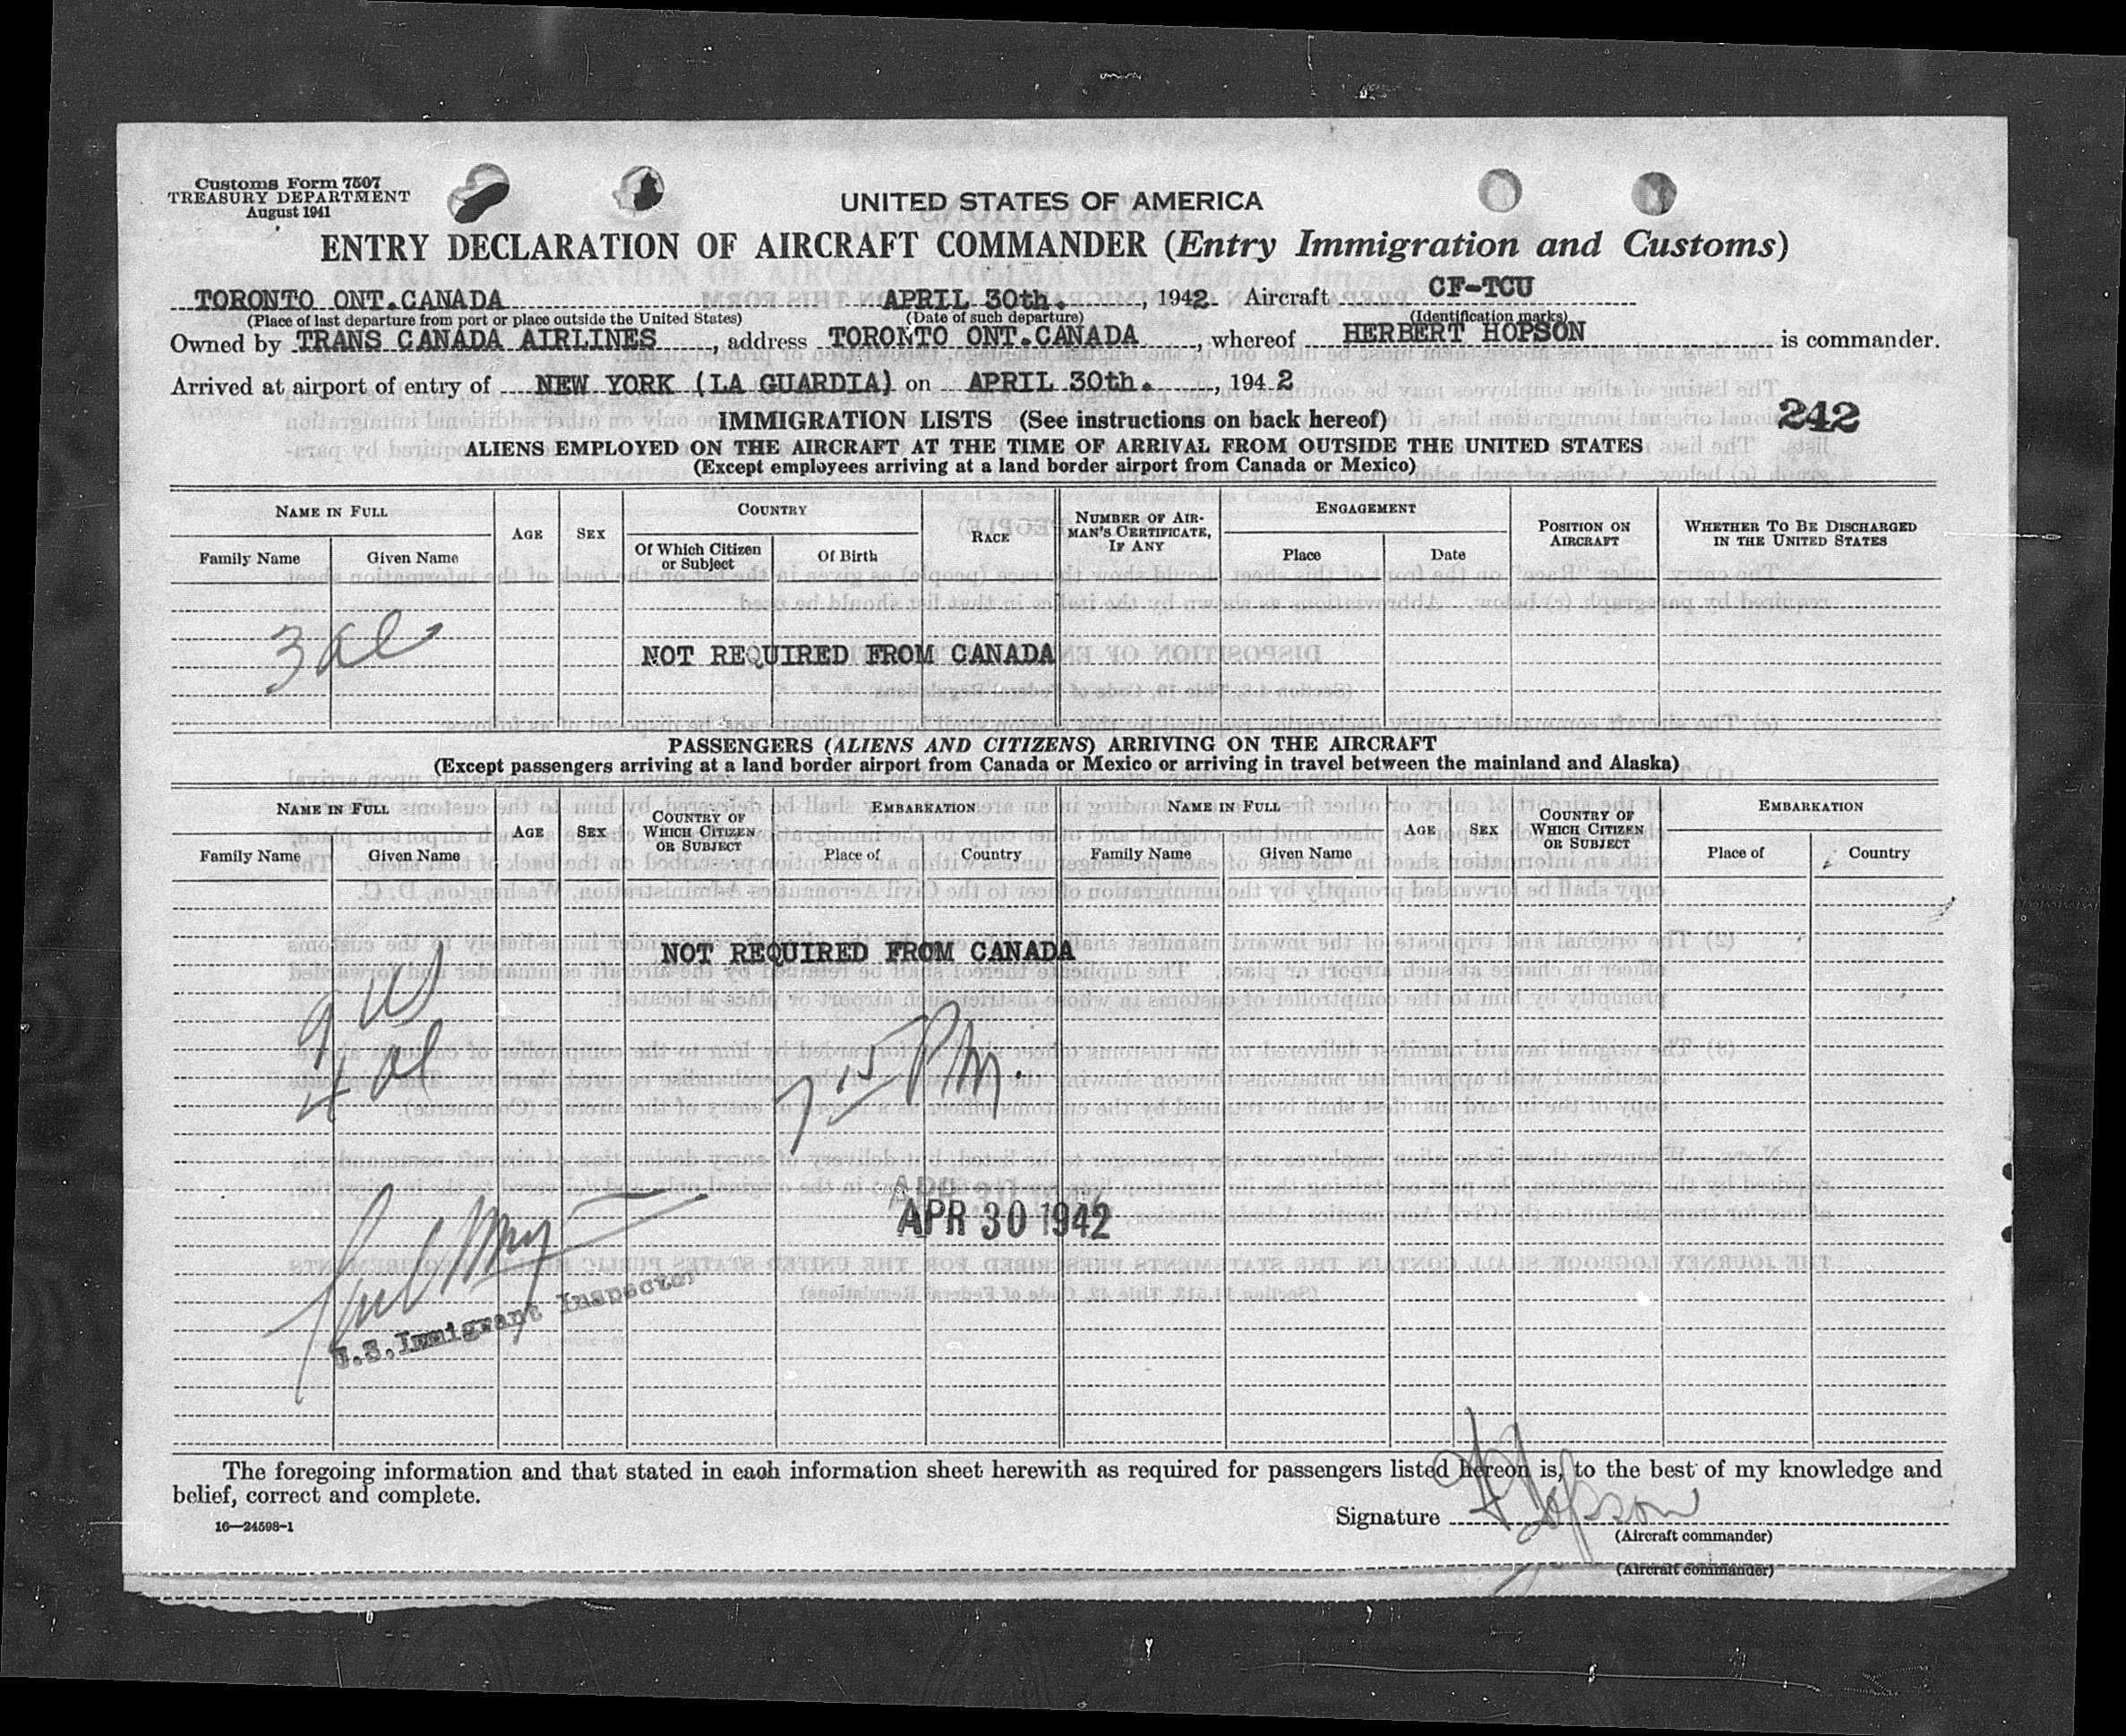 Customs Form 7507
TREASURY DEPARTMENT
August 1941
UNITED STATES OF AMERICA
ENTRY DECLARATION OF AIRCRAFT COMMANDER (Entry Immigration and Customs)
TORONTO ONT.CANADA APRIL 30th. , 1942 Aircraft CF-TCU
(Place of last departure from port or place outside the United States) (Date of such departure) (Identification marks)
Owned by TRANS CANADA AIRLINES , address TORONTO ONT.CANADA , whereof HERBERT HOPSON is commander.
Arrived at airport of entry of NEW YORK (LA GUARDIA) on APRIL 30th. , 194 2
IMMIGRATION LISTS (See instructions on back hereof)
242
ALIENS EMPLOYED ON THE AIRCRAFT AT THE TIME OF ARRIVAL FROM OUTSIDE THE UNITED STATES
(Except employees arriving at a land border airport from Canada or Mexico)
NAME IN FULL AGE SEX COUNTRY RACE NUMBER OF AIR-MAN'S CERTIFICATE, IF ANY ENGAGEMENT POSITION ON AIRCRAFT WHETHER TO BE DISCHARGED IN THE UNITED STATES
Family Name Given Name Of Which Citizen or Subject Of Birth Place Date
3 al
NOT REQUIRED FROM CANADA
PASSENGERS (ALIENS AND CITIZENS) ARRIVING ON THE AIRCRAFT
(Except passengers arriving at a land border airport from Canada or Mexico or arriving in travel between the mainland and Alaska)
NAME IN FULL AGE SEX COUNTRY OF WHICH CITIZEN OR SUBJECT EMBARKATION NAME IN FULL AGE SEX COUNTRY OF WHICH CITIZEN OR SUBJECT EMBARKATION
Family Name Given Name Place of Country Family Name Given Name Place of Country
NOT REQUIRED FROM CANADA
9
4 al
7 15 PM.
APR 30 1942
U.S.Immigrant Inspector
The foregoing information and that stated in each information sheet herewith as required for passengers listed hereon is, to the best of my knowledge and
belief, correct and complete.
16—24598-1
Signature H Hopson
(Aircraft commander)
(Aircraft commander)